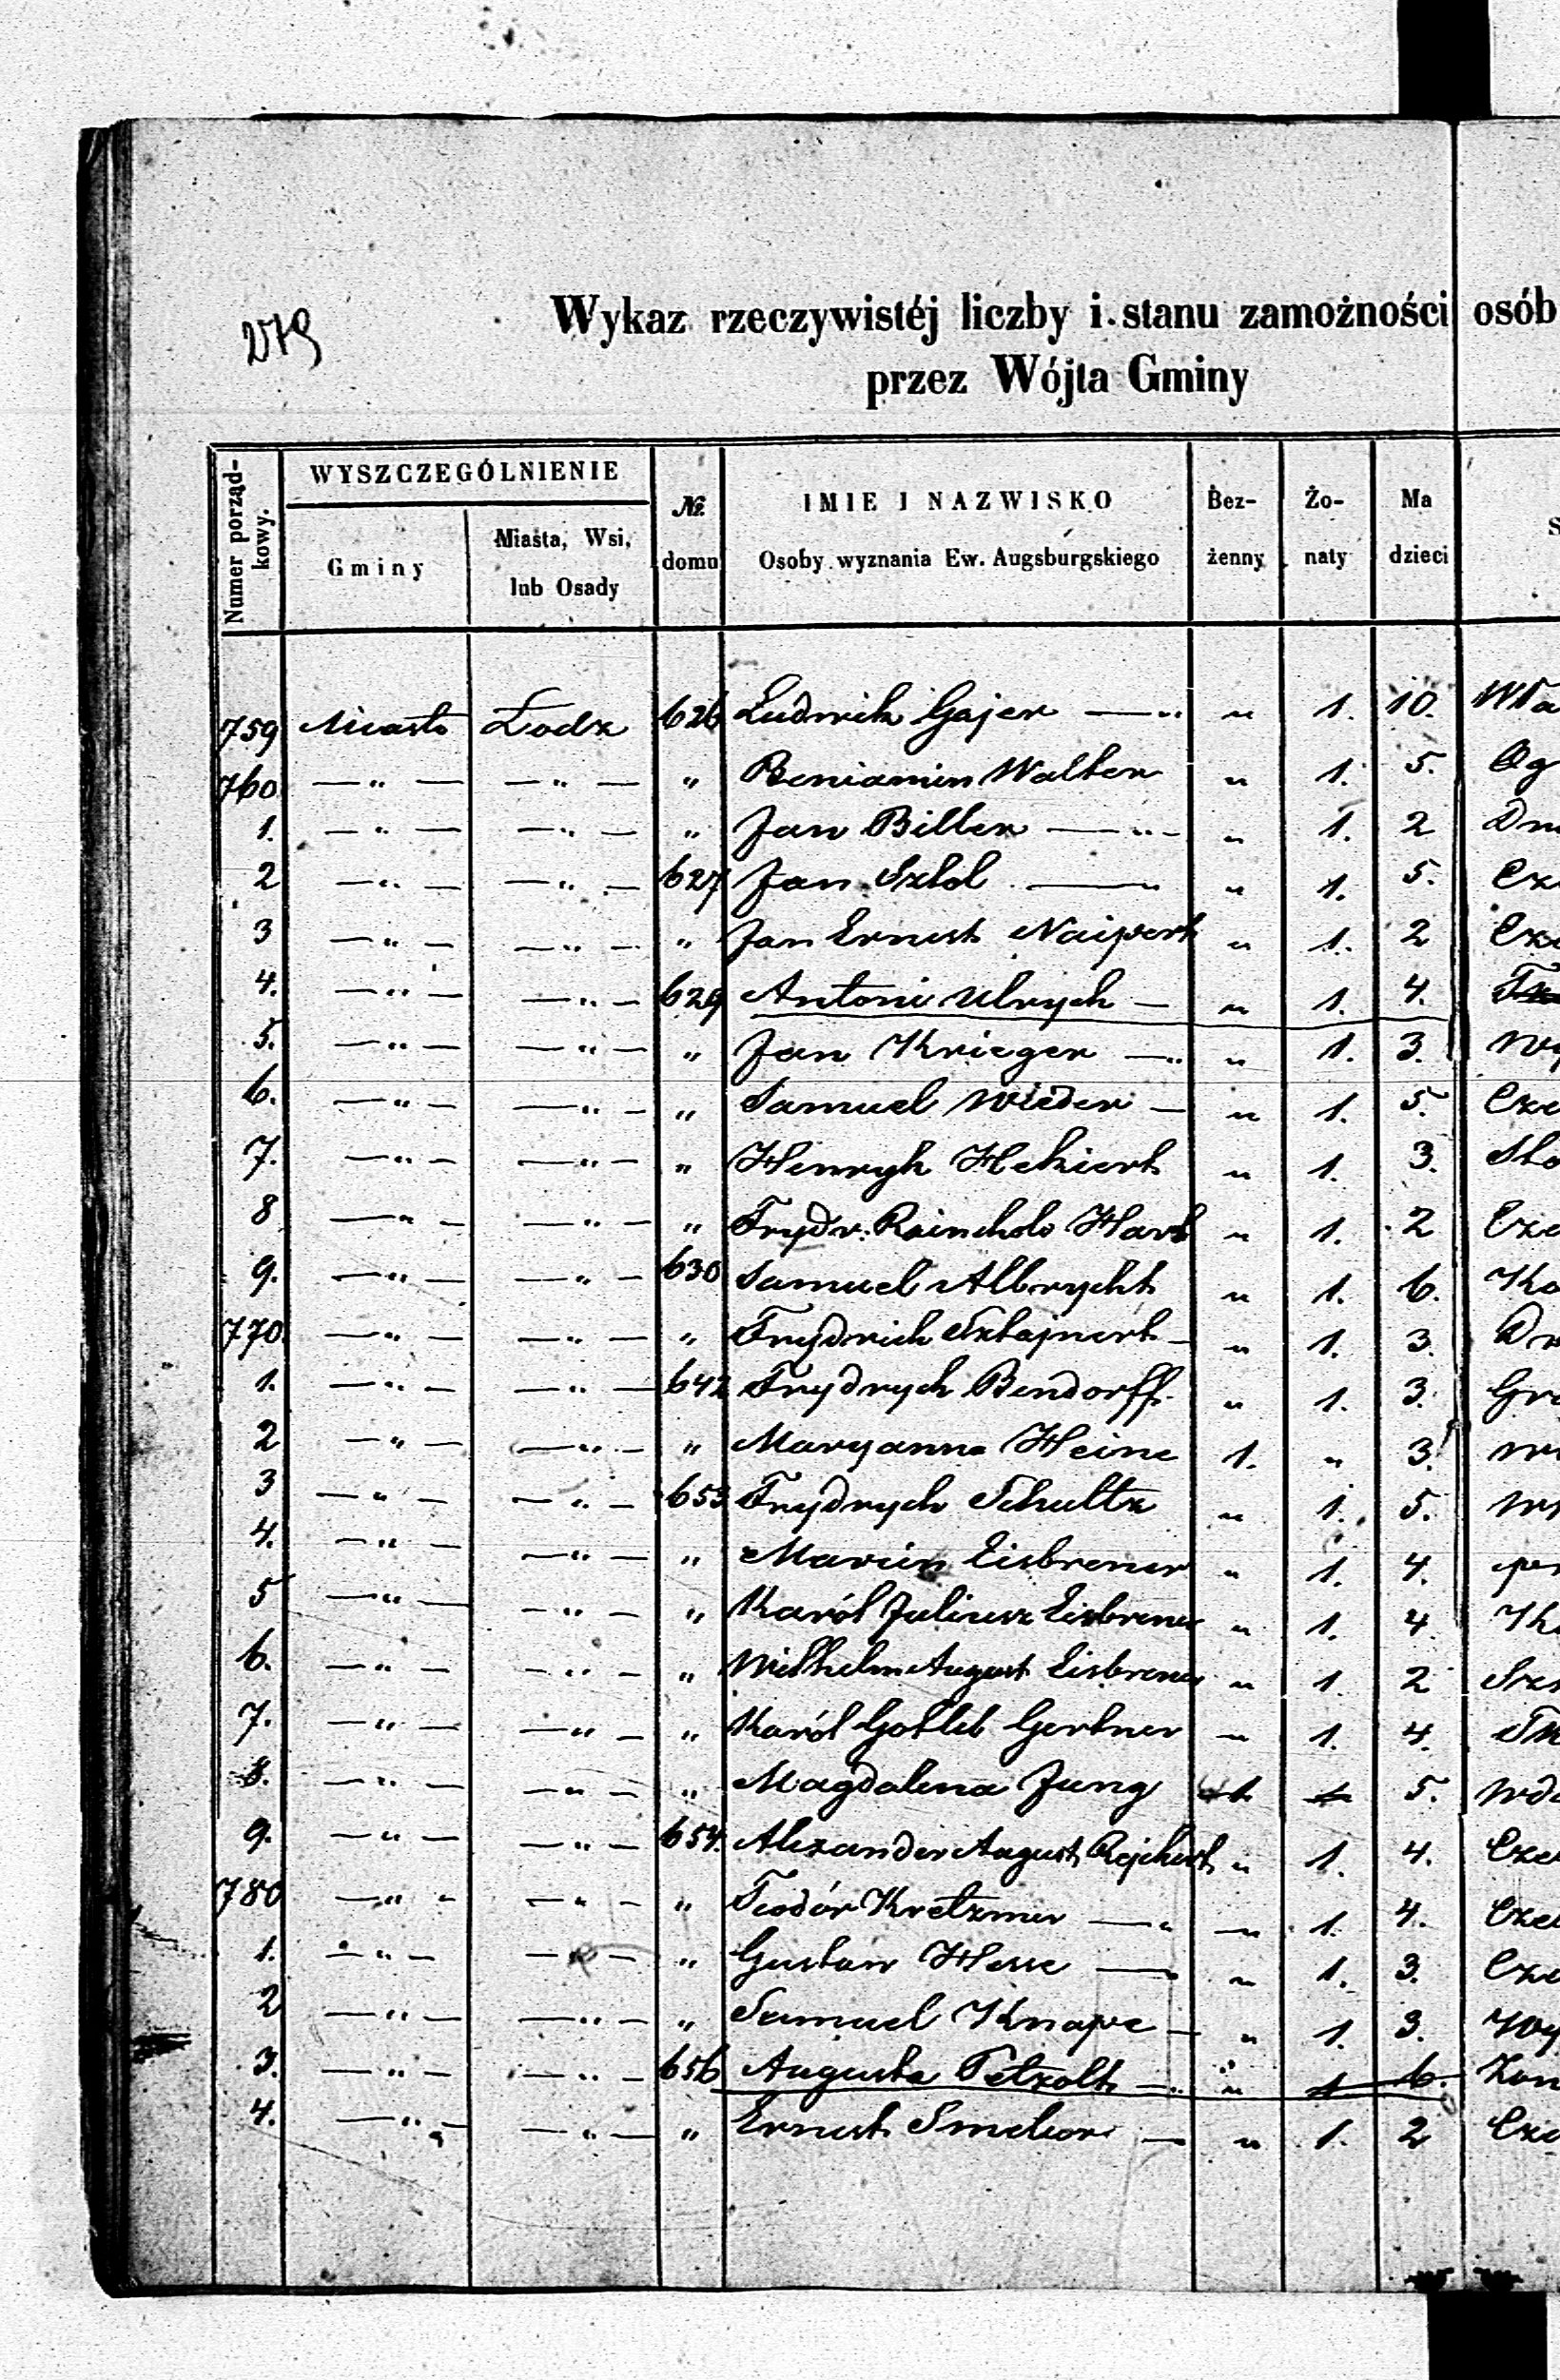 279
Wykaz rzeczywistéj liczby i stanu zamożności osób
przez Wójta Gminy
Numer porząd-kowy. WYSZCZEGÓLNIENIE Gminy Miasta, Wsi, lub Osady № domu IMIE I NAZWISKO Osoby wyznania Ew. Augsburgskiego Bez-żenny Żo-naty Ma dzieci
759 Miasto Łodz 626 Ludwik Gajer — " " 1. 10. Wła
760 — " — — " — " Beniamin Walter " 1. 5. Og
1. — " — — " — " Jan Biller — " — " 1. 2
2 — " — — " — 627 Jan Sztol — " " 1. 5. Cze
3 — " — — " — " Jan Ernest Naipert " 1. 2 Cze
4. — " — — " — 629 Antoni Ulrych — " 1. 4.
5. — " — — " — " Jan Krieger — " " 1. 3. Wy
6. — " — — " — " Samuel Wieder — " 1. 5. Cze
7. — " — — " — " Henryk Hekiert " 1. 3. Sto
8 — " — — " — " Frydr. Reinchold Hart " 1. 2 Cze
9. — " — — " — 630 Samuel Albrycht " 1. 6. Ko
770. — " — — " — " Frydrich Sztajnert — " 1. 3.
1. — " — — " — 642 Frydrych Bendorff. " 1. 3.
2 — " — — " — " Maryanna Heine 1. " 3.
3 — " — — " — 653 Frydrych Schultz " 1. 5.
4. — " — — " — " Marcin Eisbrener " 1. 4.
5 — " — — " — " Karól Juliusz Eisbrener " 1. 4.
6. — " — — " — " Wilhelm August Eisbrener " 1. 2
7. — " — — " — " Karól Gotleb Gertner " 1. 4.
8. — " — — " — " Magdalena Jung 1 5. Wdo
9. — " — — " — 654. Alexander August Rejchert " 1. 4. Cze
780 — " — — " — " Teodór Kretzmer — " " 1. 4. Cze
1. — " — — " — " Gustaw Hesse — " " 1. 3. Cze
2 — " — — " — " Samuel Knape — " 1. 3. Wy
3. — " — — " — 656 Augusta Petzolt — " " 1 6.
4. — " — — " — " Ernest — " 1. 2 Cze